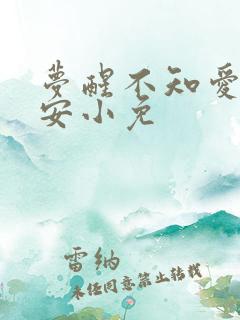 夢醒不知愛
安小兔
雷纳
未经同意禁止转载